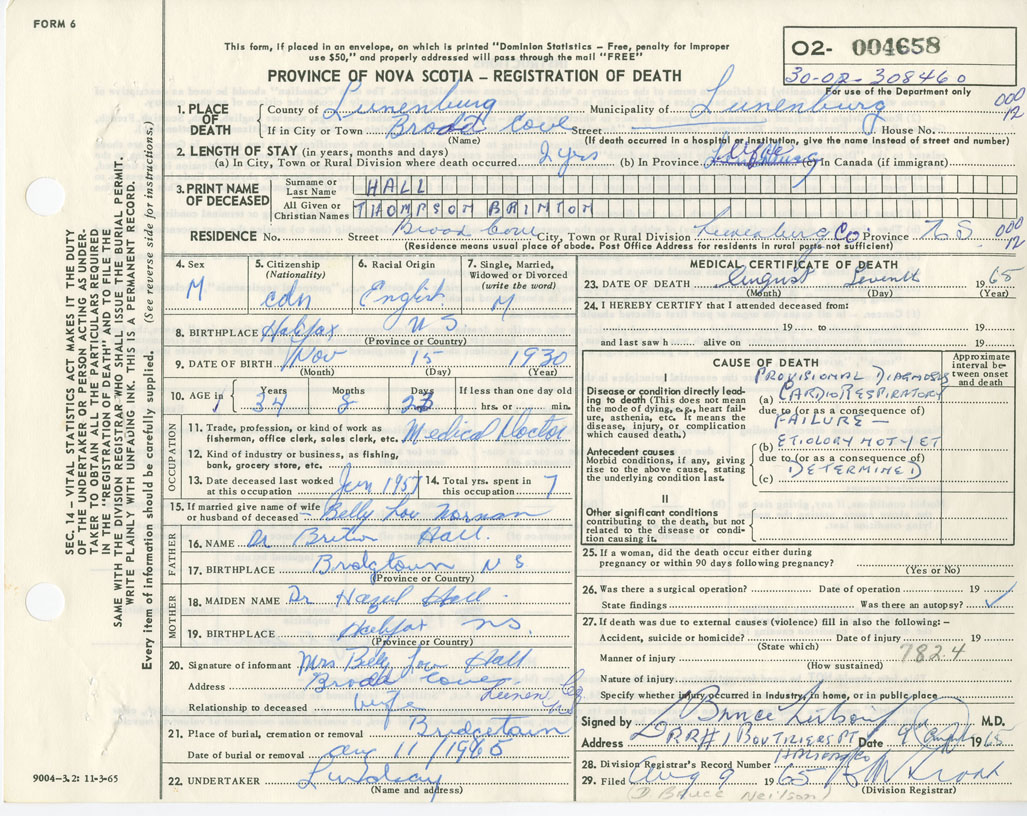 FORM 6
This form, if placed in an envelope, on which is printed "Dominion Statistics – Free, penalty for improper
use $50," and properly addressed will pass through the mail "FREE"
PROVINCE OF NOVA SCOTIA – REGISTRATION OF DEATH
O2- 004658
30-02-308460
For use of the Department only
000
12
1. PLACE OF DEATH
County of Lunenburg Municipality of Lunenburg
If in City or Town Broad Cove Street House No.
(Name) (If death occurred in a hospital or institution, give the name instead of street and number)
2. LENGTH OF STAY (in years, months and days)
(a) In City, Town or Rural Division where death occurred 2 yrs (b) In Province Life (c) in Canada (if immigrant)
3. PRINT NAME OF DECEASED
Surname or Last Name HALL
All Given or Christian Names THOMPSON BRINTON
RESIDENCE No. Street Broad Cove City, Town or Rural Division Lunenburg Co Province N S
000
12
(Residence means usual place of abode. Post Office Address for residents in rural parts not sufficient)
4. Sex M
5. Citizenship (Nationality) cdn
6. Racial Origin English
7. Single, Married, Widowed or Divorced (write the word) M
8. BIRTHPLACE Halifax N S
(Province or Country)
9. DATE OF BIRTH Nov 15 1930
(Month) (Day) (Year)
10. AGE in Years 34 Months 8 Days 23 If less than one day old hrs. or min.
OCCUPATION
11. Trade, profession, or kind of work as fisherman, office clerk, sales clerk, etc. Medical Doctor
12. Kind of industry or business, as fishing, bank, grocery store, etc.
13. Date deceased last worked at this occupation Jan 1957
14. Total yrs. spent in this occupation 7
15. If married give name of wife or husband of deceased – Betty Lou Norman
FATHER
16. NAME Dr Briton Hall.
17. BIRTHPLACE Bridgtown N S
(Province or Country)
MOTHER
18. MAIDEN NAME Dr Hazel Hall.
19. BIRTHPLACE Halifax N.S.
(Province or Country)
20. Signature of informant Mrs Betty Lou Hall
Address Broad Cove Lunen Co
Relationship to deceased wife
21. Place of burial, cremation or removal Bridgetown
Date of burial or removal Aug 11 / 1965
22. UNDERTAKER Lindsay
(Name and address)
MEDICAL CERTIFICATE OF DEATH
23. DATE OF DEATH August Seventh 1965
(Month) (Day) (Year)
24. I HEREBY CERTIFY that I attended deceased from:
19 to 19
and last saw h alive on 19
CAUSE OF DEATH
Approximate interval between onset and death
I
PROVISIONAL DIAGNOSIS
Disease or condition directly leading to death (This does not mean the mode of dying, e.g., heart failure, asthenia, etc. It means the disease, injury, or complication which caused death.)
(a) CARDIO RESPIRATORY
due to (or as a consequence of)
FAILURE –
Antecedent causes
Morbid conditions, if any, giving rise to the above cause, stating the underlying condition last.
(b) ETIOLOGY NOT YET
due to (or as a consequence of)
(c) DETERMINED
II
Other significant conditions
contributing to the death, but not related to the disease or condition causing it.
25. If a woman, did the death occur either during pregnancy or within 90 days following pregnancy?
(Yes or No)
26. Was there a surgical operation? Date of operation 19
State findings Was there an autopsy? ✓
27. If death was due to external causes (violence) fill in also the following: –
Accident, suicide or homicide? Date of injury 19
(State which)
Manner of injury 7824
(How sustained)
Nature of injury
Specify whether injury occurred in industry, in home, or in public place
Signed by D Bruce Neilson M.D.
Address RR#1 BOUTILIERS PT Date 9 August 1965
HALIFAX CO
28. Division Registrar's Record Number
29. Filed Aug 9 1965
(Division Registrar)
(D Bruce Neilson)
9004–3.2: 11-3-65
SEC. 14 – VITAL STATISTICS ACT MAKES IT THE DUTY
OF THE UNDERTAKER OR PERSON ACTING AS UNDER-
TAKER TO OBTAIN ALL THE PARTICULARS REQUIRED
IN THE "REGISTRATION OF DEATH" AND TO FILE THE
SAME WITH THE DIVISION REGISTRAR WHO SHALL ISSUE THE BURIAL PERMIT.
WRITE PLAINLY WITH UNFADING INK. THIS IS A PERMANENT RECORD.
Every item of information should be carefully supplied. (See reverse side for instructions.)